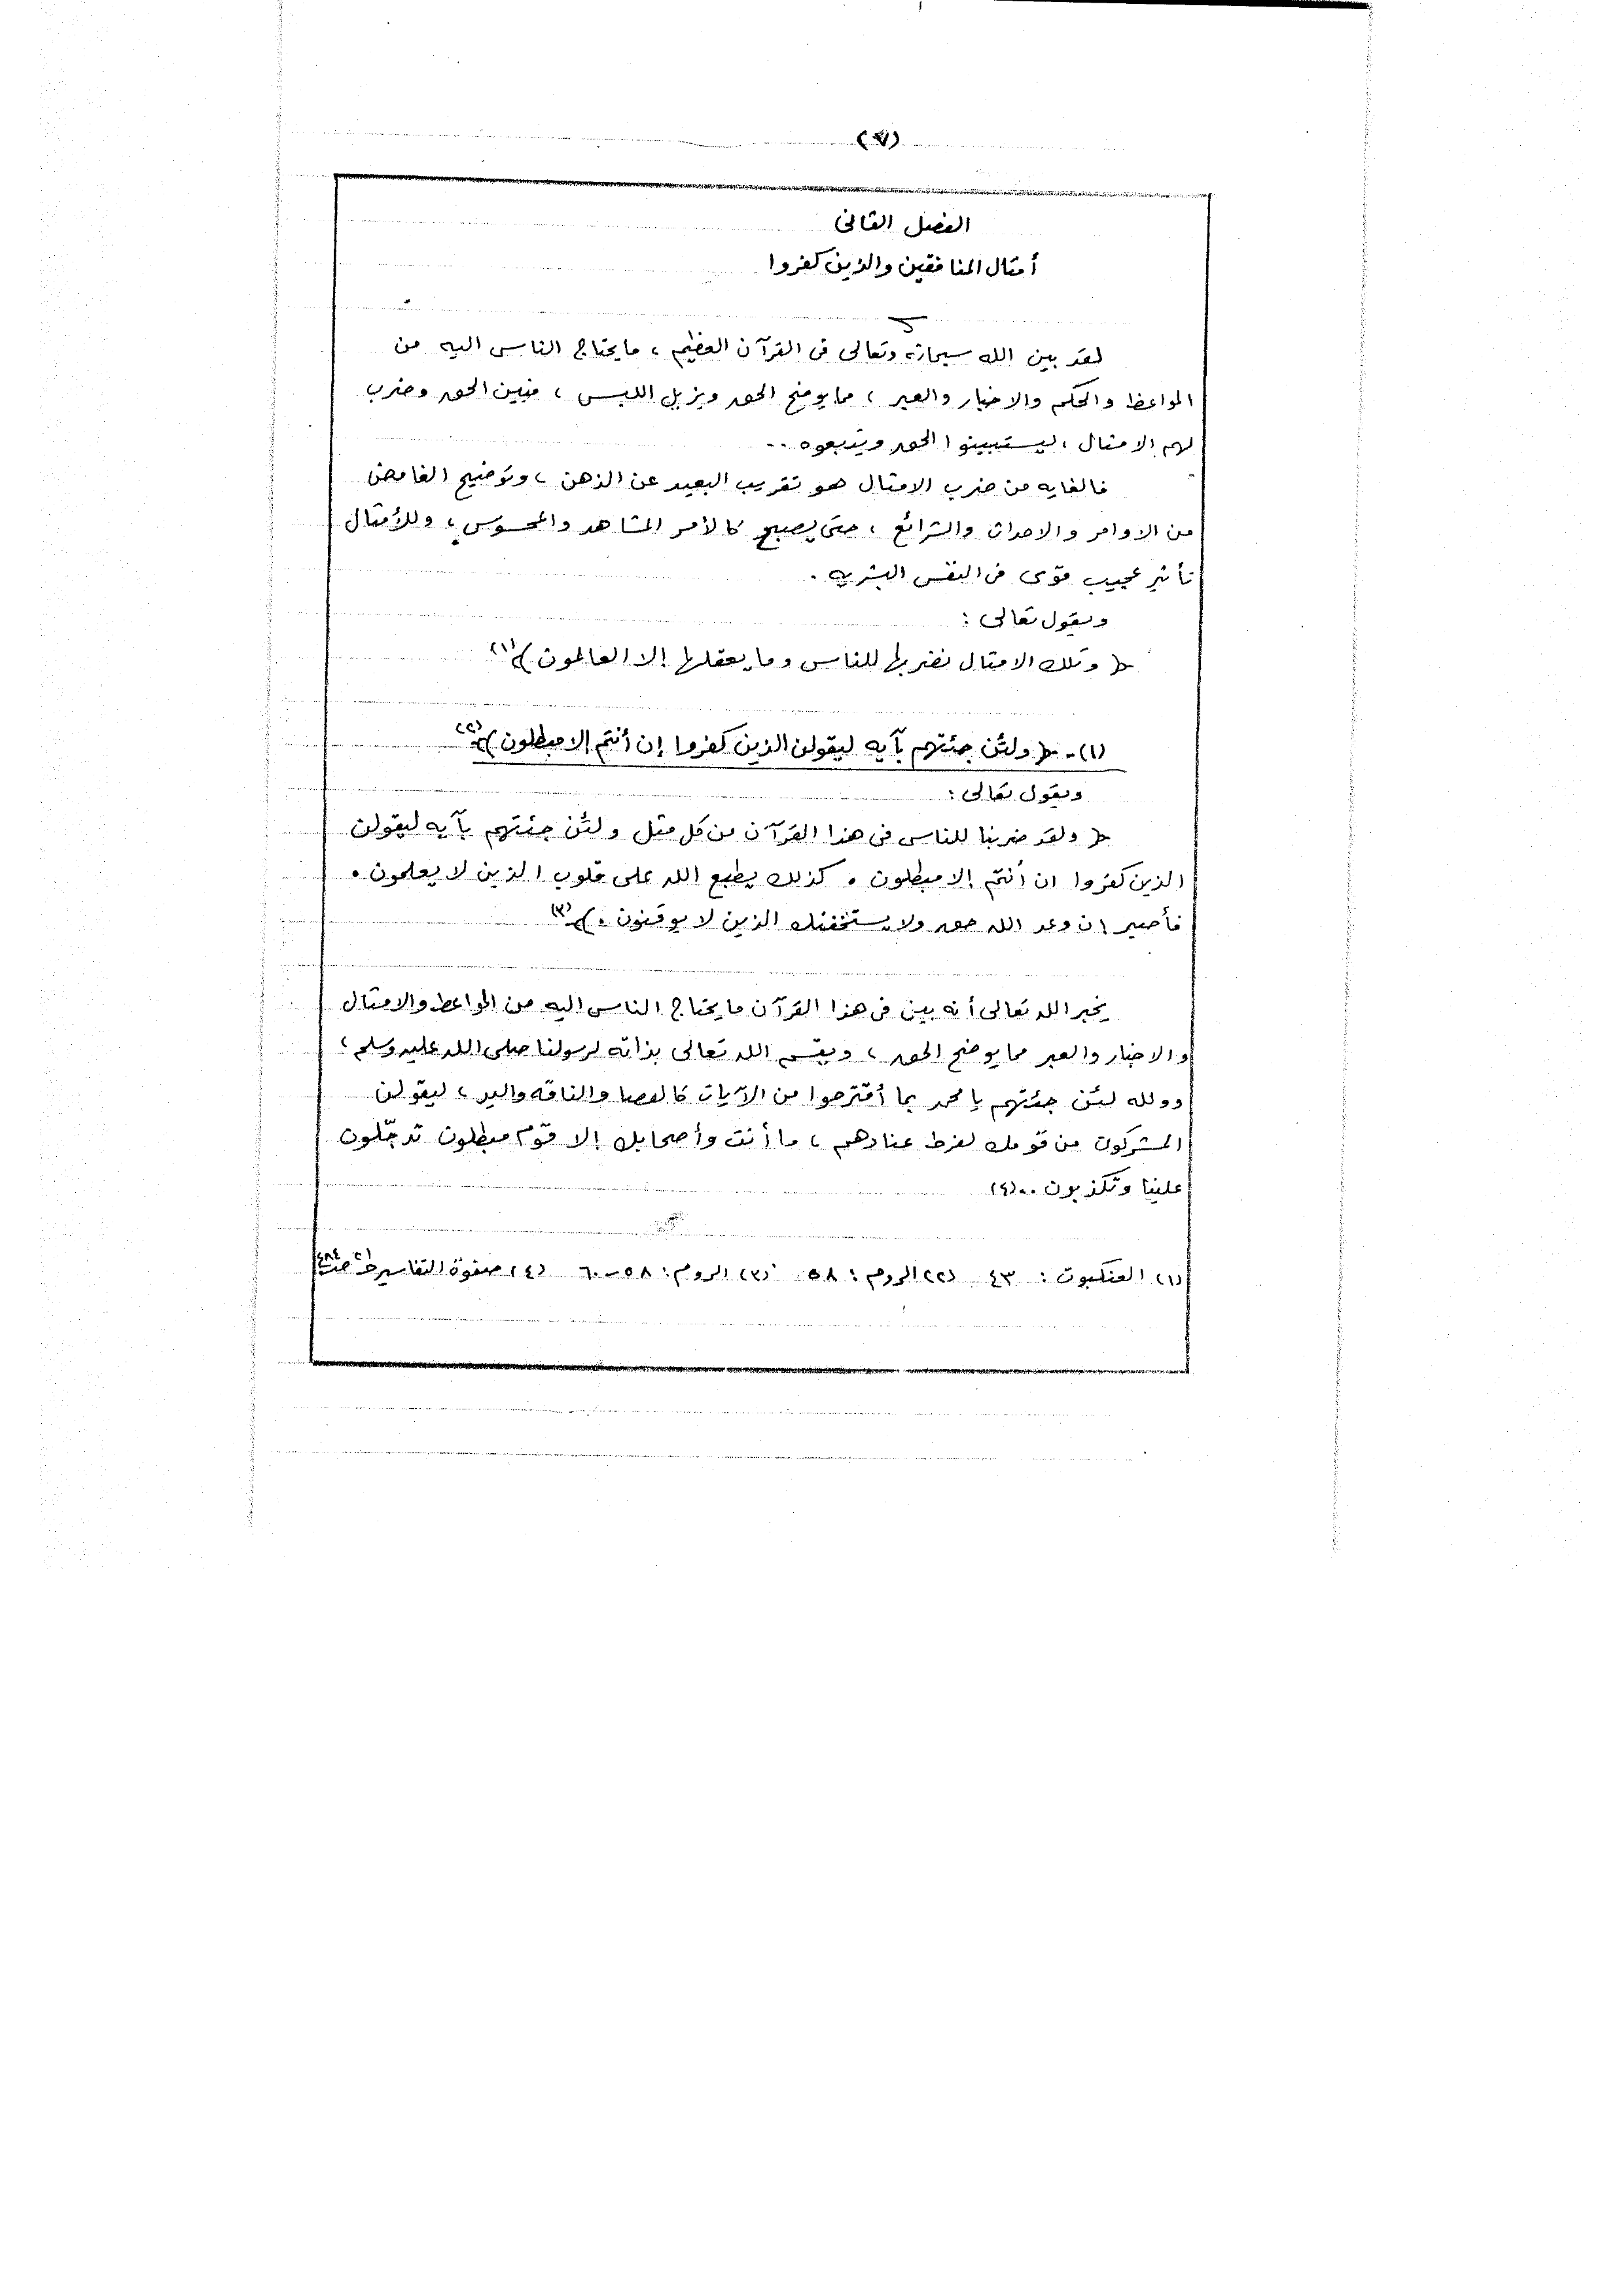 (٧)
الفصل الثانى
أمثال المنافقين والذين كفروا
لقد بين الله سبحانه وتعالى فى القرآن العظيم ، ما يحتاج الناس اليه من
المواعظ والحكم والاخبار والعبر ، مما يوضح الحق ويزيل اللبس ، فبين الحق وضرب
لهم الامثال ، ليستبينوا الحق ويتبعوه ..
فالغايه من ضرب الامثال هو تقريب البعيد عن الذهن ، وتوضيح الغامض
من الاوامر والاحداث والشرائع ، حتى يصبح كالأمر المشاهد والمحسوس ، وللأمثال
تأثير عجيب قوى فى النفس البشريه .
ويقول تعالى :
﴿ وتلك الامثال نضربها للناس وما يعقلها إلا العالمون ﴾(١)
(١) - ﴿ ولئن جئتهم بآيه ليقولن الذين كفروا إن أنتم إلا مبطلون ﴾(٢)
ويقول تعالى :
﴿ ولقد ضربنا للناس فى هذا القرآن من كل مثل ولئن جئتهم بآيه ليقولن
الذين كفروا ان أنتم إلا مبطلون . كذلك يطبع الله على قلوب الذين لا يعلمون .
فأصبر إن وعد الله حق ولا يستخفنك الذين لا يوقنون . ﴾(٣)
يخبر الله تعالى أنه بين فى هذا القرآن ما يحتاج الناس اليه من المواعظ والامثال
والاخبار والعبر مما يوضح الحق ، ويقسم الله تعالى بذاته لرسولنا صلى الله عليه وسلم ؛
وولله لئن جئتهم يا محمد بما أقترحوا من الآيات كالعصا والناقه واليد ، ليقولن
المشركون من قومك لفرط عنادهم ، ما أنت وأصحابك إلا قوم مبطلون تدجّلون
علينا وتكذبون ..(٤)
(١) العنكبوت : ٤٣ (٢) الروم : ٥٨ (٣) الروم : ٥٨-٦٠ (٤) صفوة التفاسير